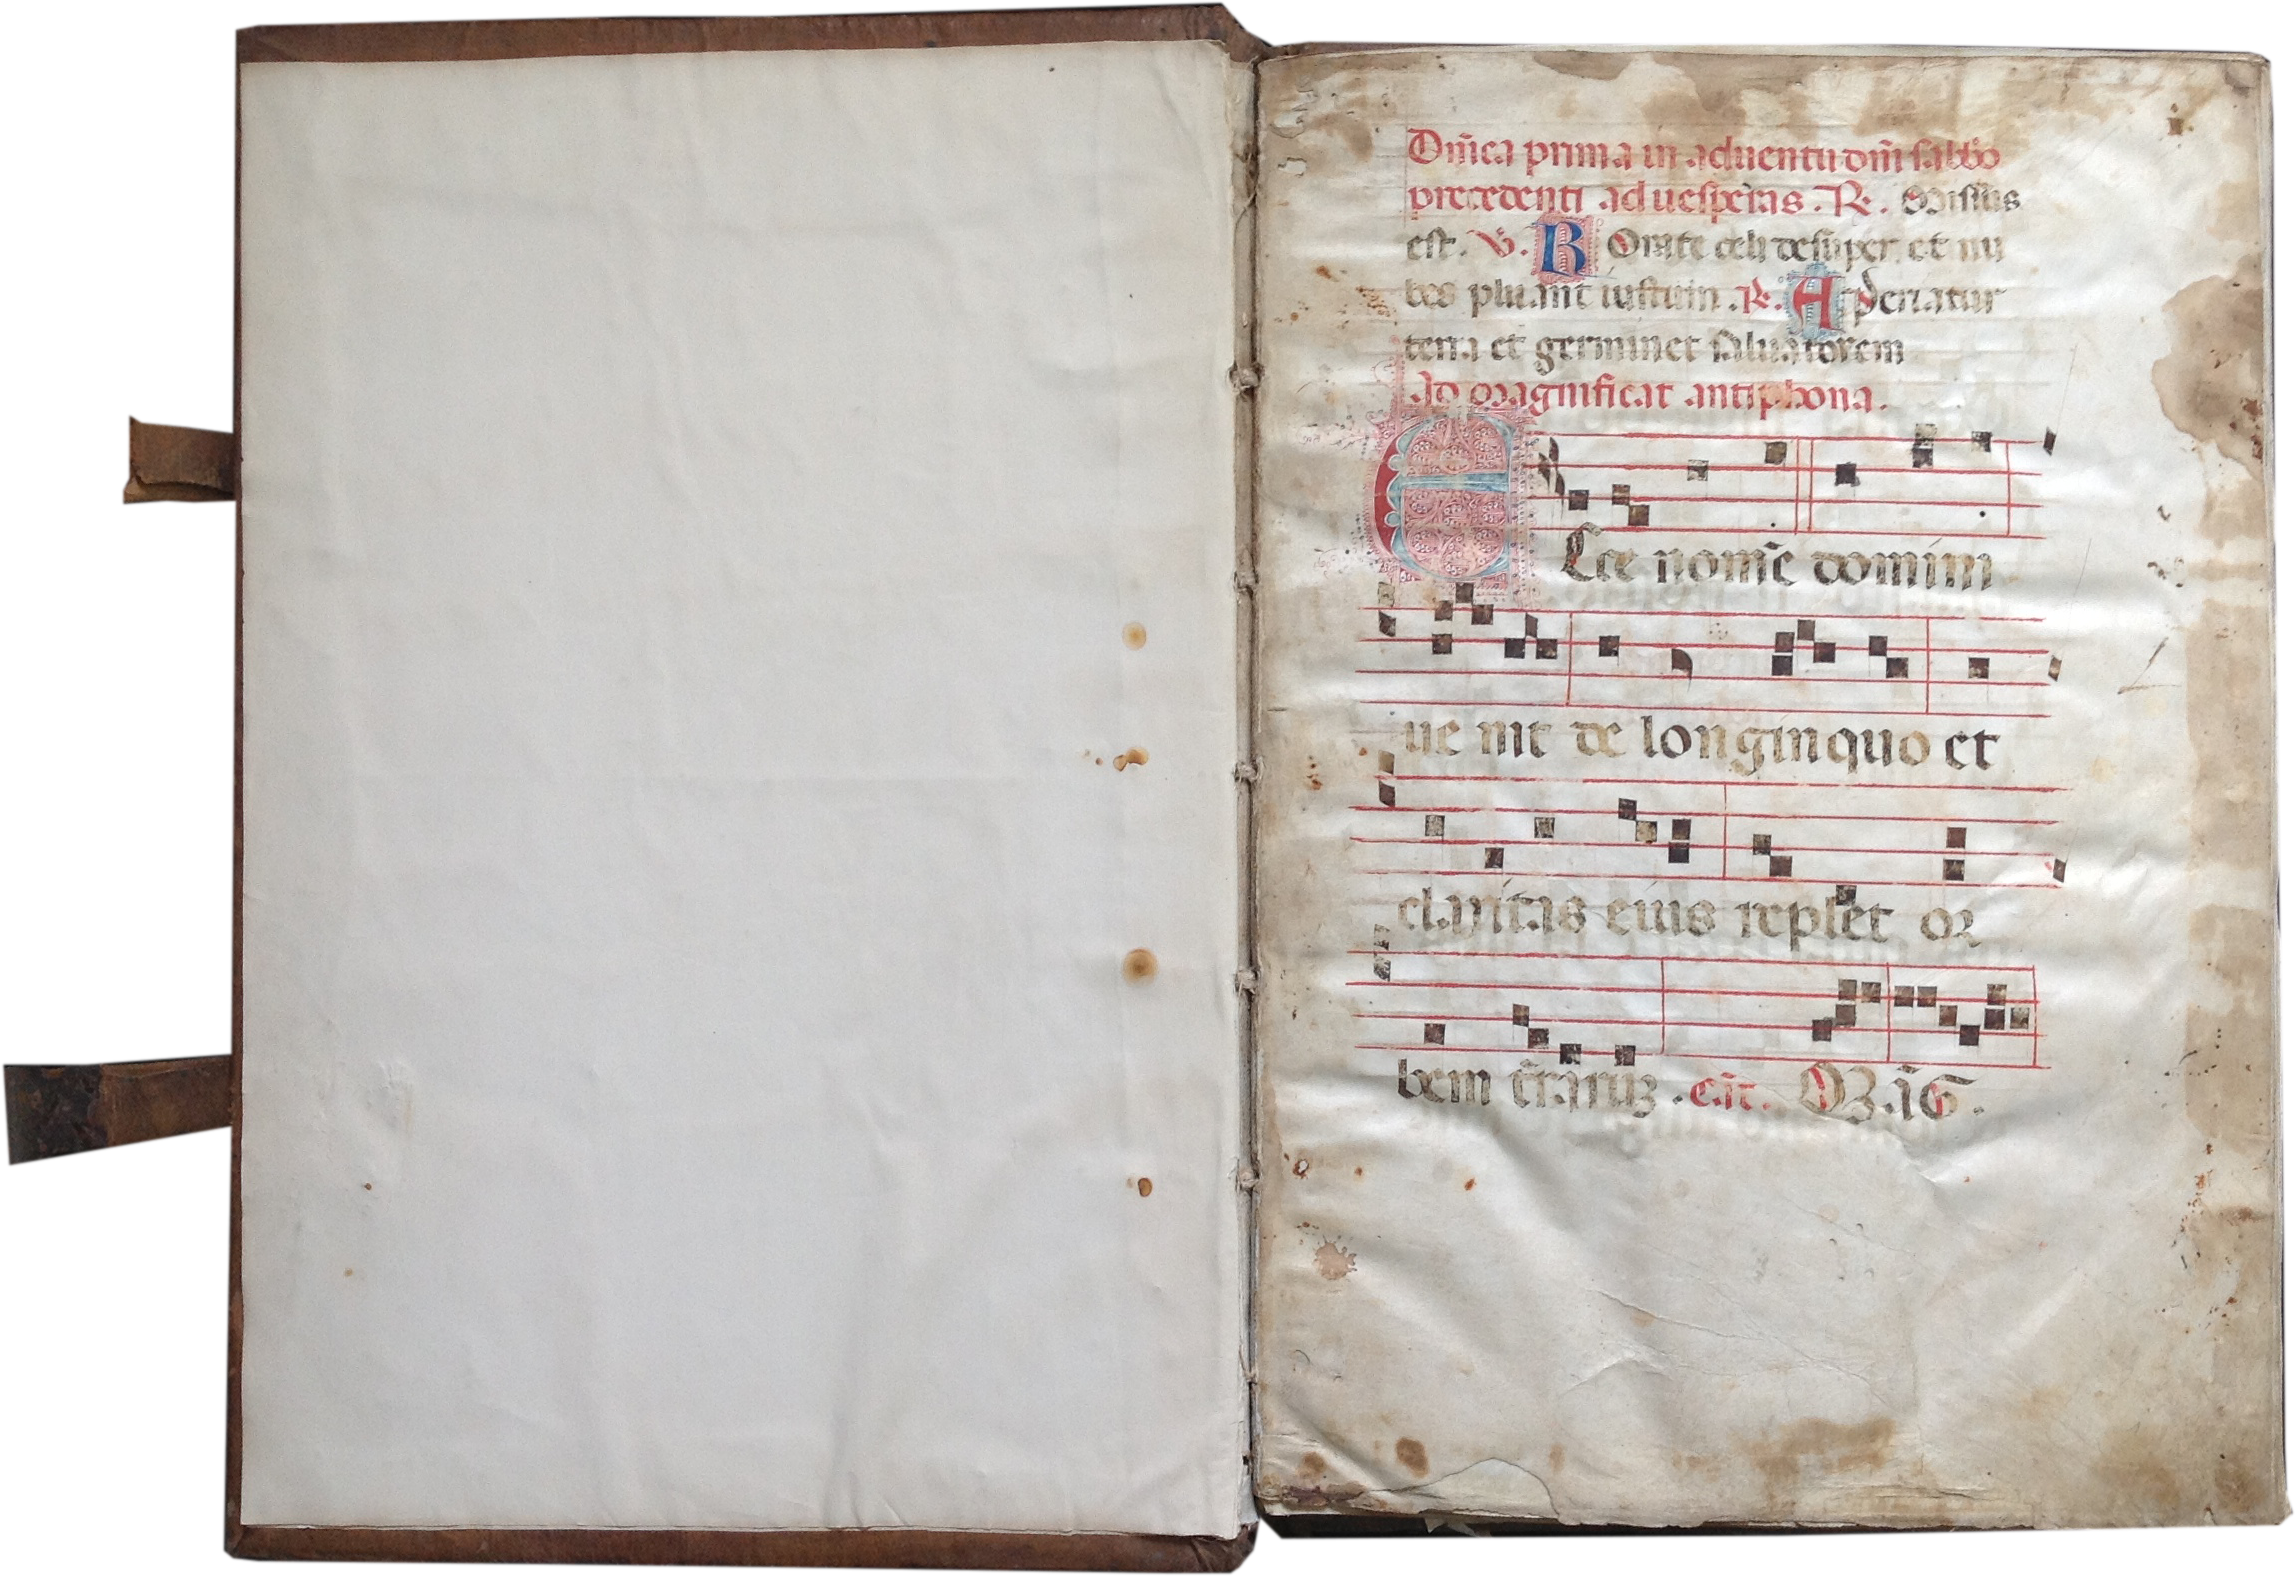 Dn̄ica prima in aduentu dn̄i sabb̄o
precedenti ad uesperas . R̷. Missus
est. V̷. R Orate celi desuper et nu
bes pluant iustum . R̷. A periatur
terra et germinet saluatorem
Ad magnificat antiphona .
E Cce nom̄e domini
ue nit de longinquo et
claritas eius replet or
bem t̄raruꝫ .